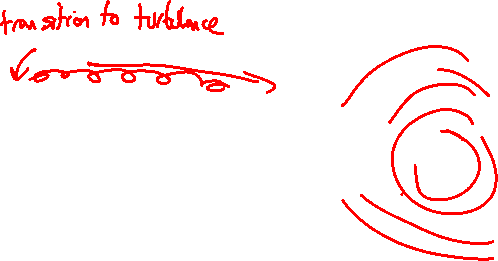 transition to turbulance